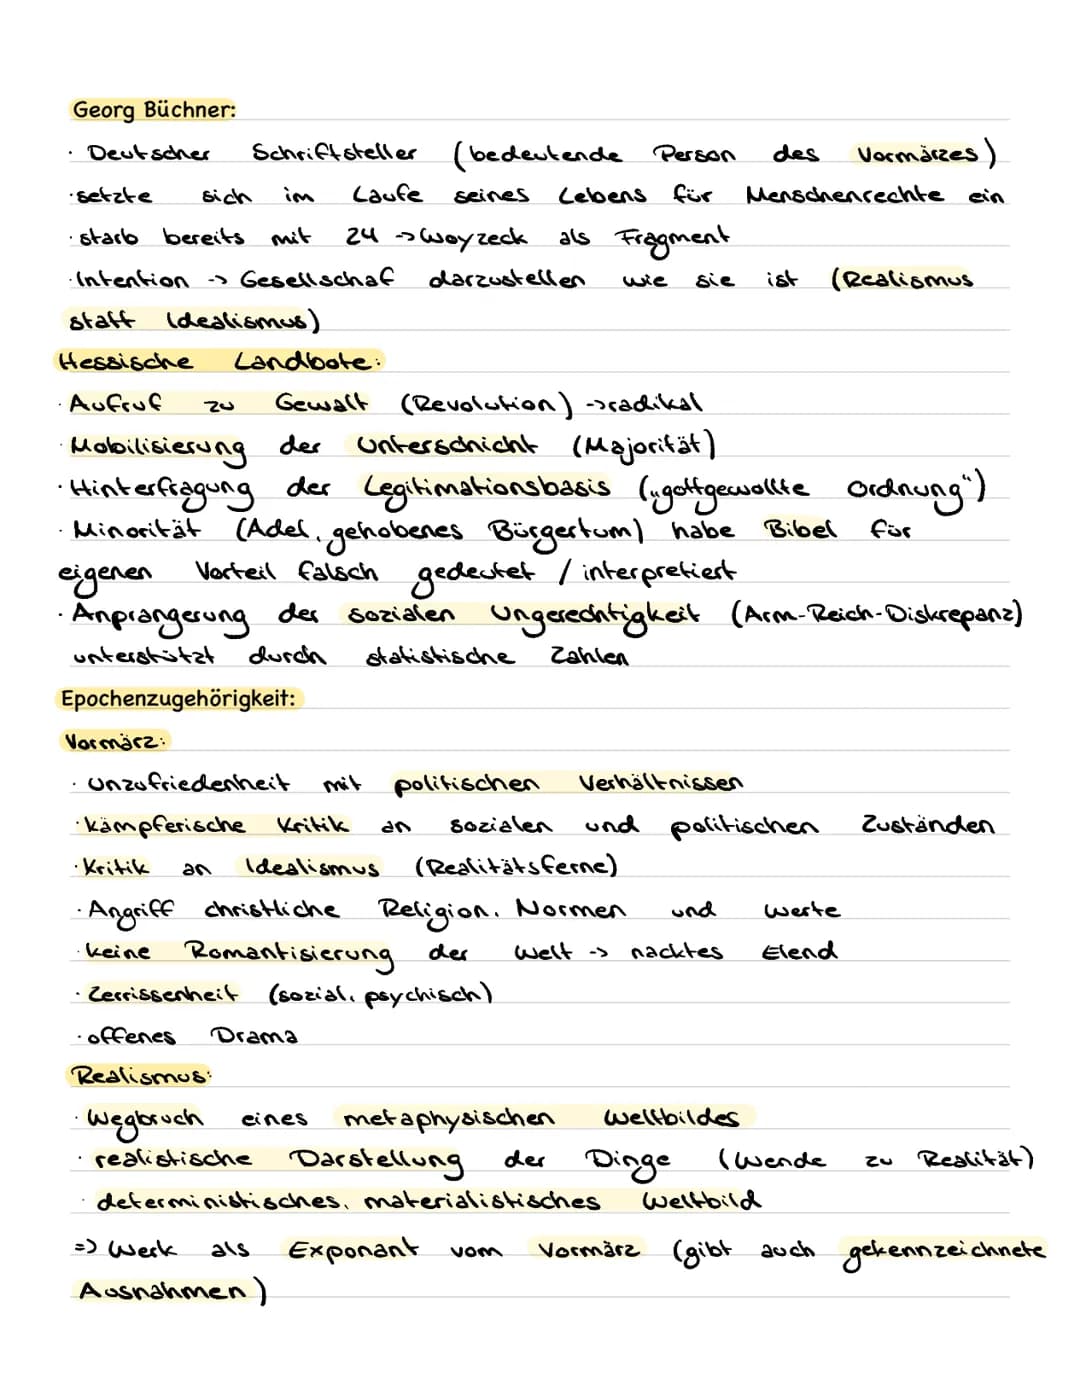 Georg Büchner:
· Deutscher Schriftsteller (bedeutende Person des Vormärzes)
· setzte sich im Laufe seines Lebens für Menschenrechte ein
· starb bereits mit 24 -> Woyzeck als Fragment
· Intention -> Gesellschaf darzustellen wie sie ist (Realismus
statt Idealismus)
Hessische Landbote:
· Aufruf zu Gewalt (Revolution) -> radikal
· Mobilisierung der Unterschicht (Majorität)
· Hinterfragung der Legitimationsbasis („gottgewollte Ordnung“)
· Minorität (Adel, gehobenes Bürgertum) habe Bibel für
eigenen Vorteil falsch gedeutet / interpretiert
· Anprangerung der sozialen Ungerechtigkeit (Arm-Reich-Diskrepanz)
unterstützt durch statistische Zahlen
Epochenzugehörigkeit:
Vormärz:
· Unzufriedenheit mit politischen Verhältnissen
· kämpferische Kritik an sozialen und politischen Zuständen
· Kritik an Idealismus (Realitätsferne)
· Angriff christliche Religion, Normen und Werte
· keine Romantisierung der Welt -> nacktes Elend
· Zerrissenheit (sozial, psychisch)
· offenes Drama
Realismus:
· Wegbruch eines metaphysischen Weltbildes
· realistische Darstellung der Dinge (Wende zu Realität)
· deterministisches, materialistisches Weltbild
=> Werk als Exponant vom Vormärz (gibt auch gekennzeichnete
Ausnahmen)